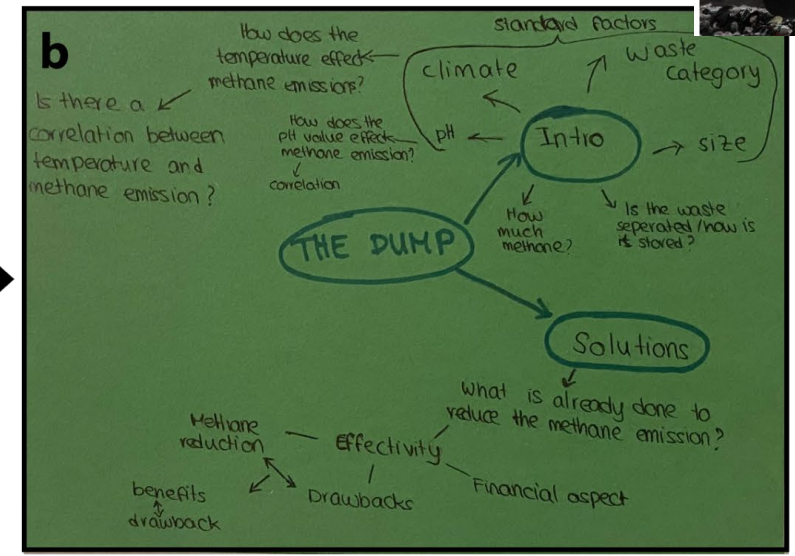 b
standard factors
How does the
temperature effect
methane emissions?
climate
Waste
category
Is there a
correlation between
temperature and
methane emission?
How does the
pH value effect
methane emission?
correlation
pH
Intro
size
How
much
methane?
Is the waste
seperated/how is
it stored?
THE DUMP
Solutions
What is already done to
reduce the methane emission?
Methane
reduction
Effectivity
Financial aspect
benefits
drawback
Drawbacks